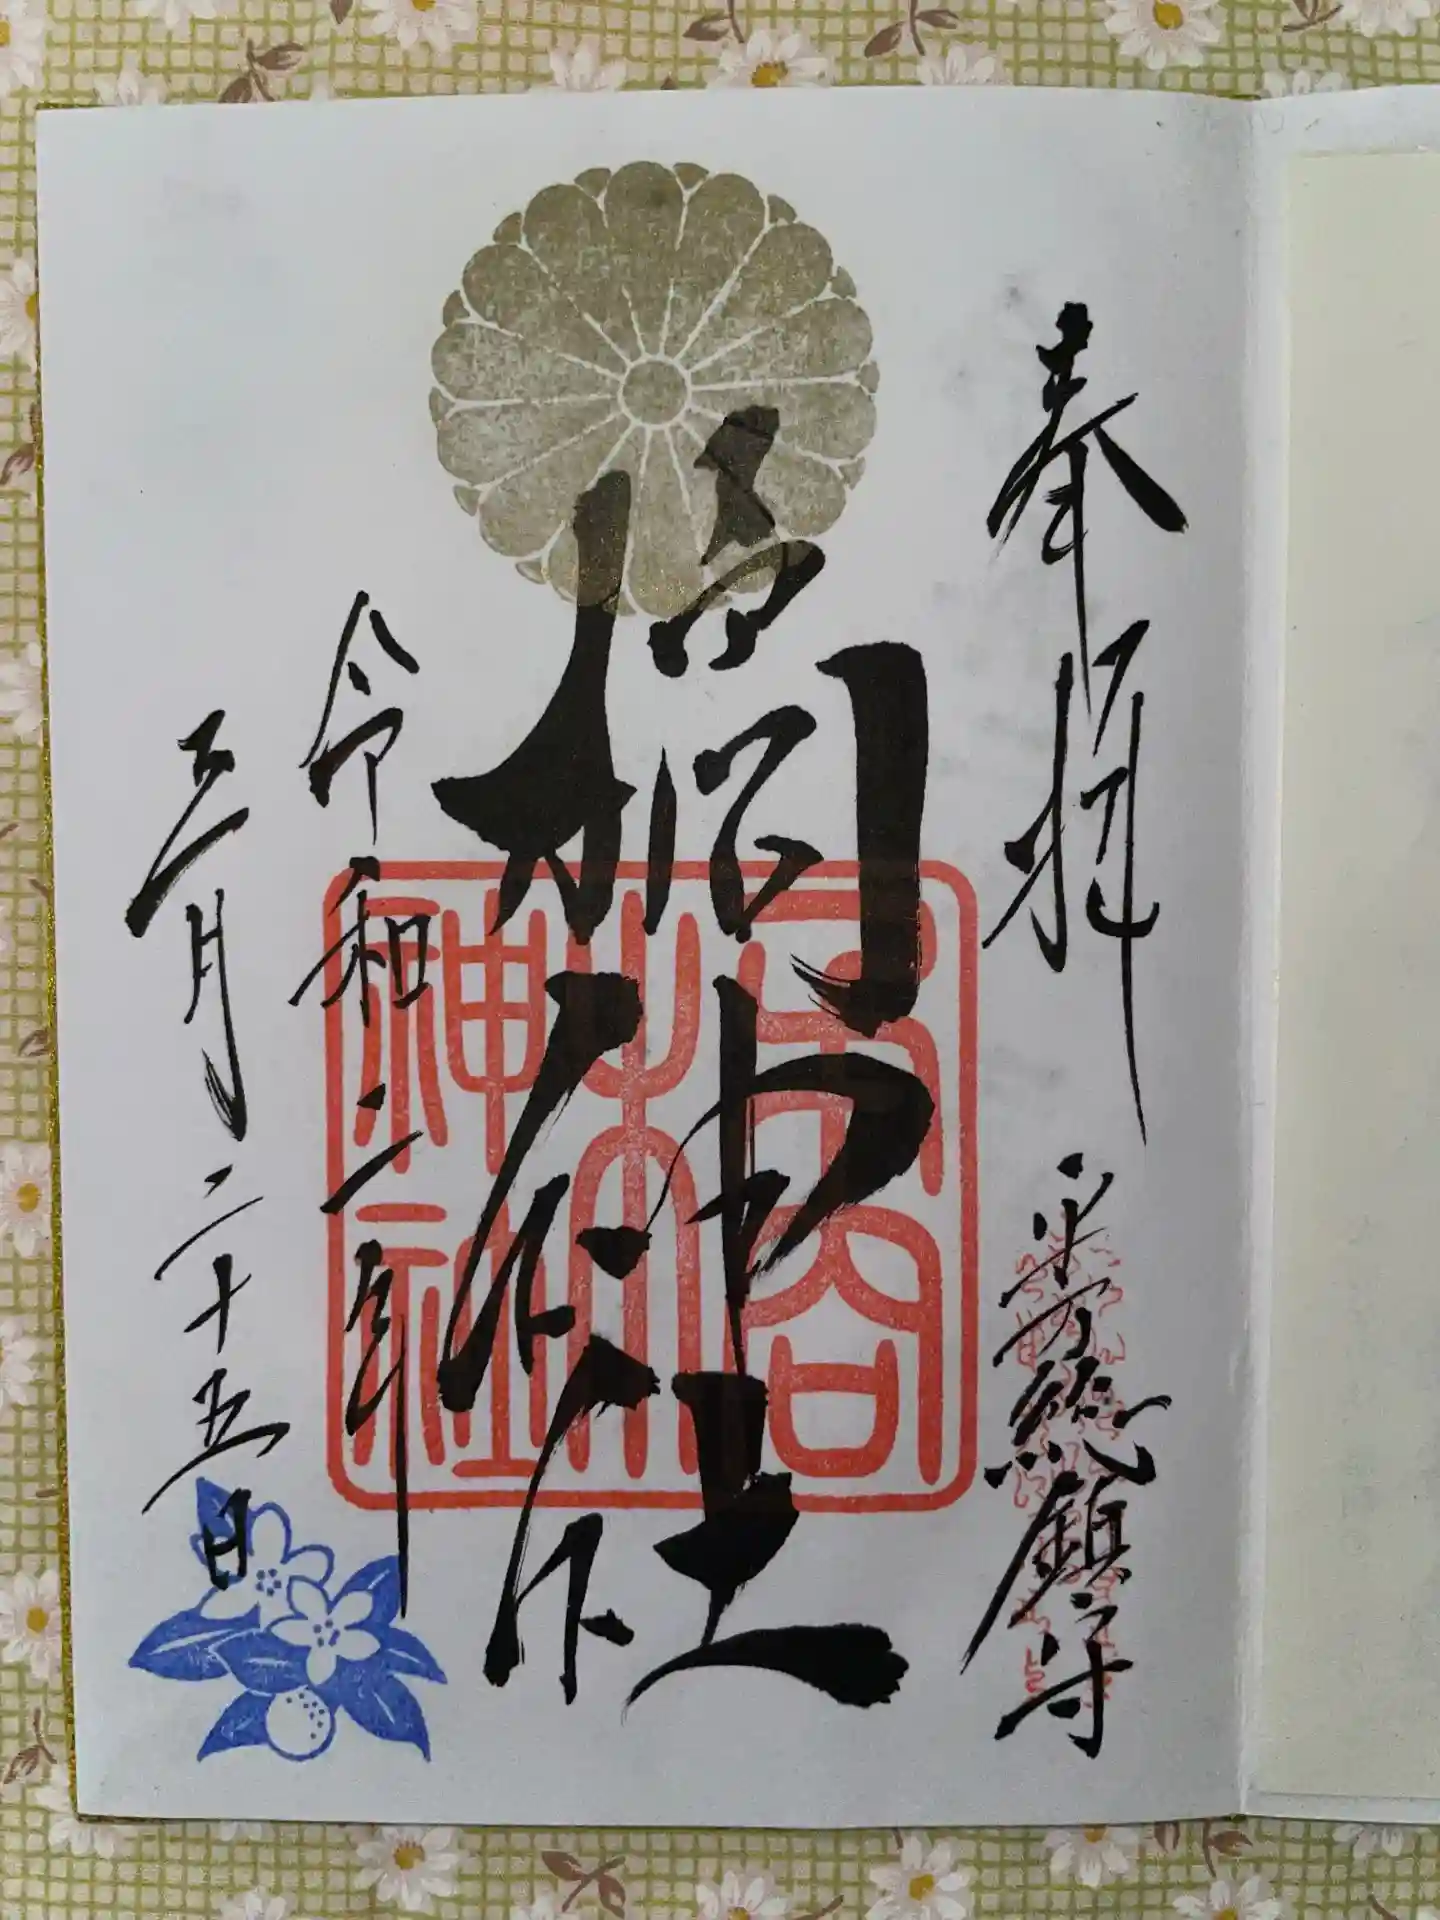 奉拝
総鎮守
橘神社
橘神社
令和二年
三月二十五日